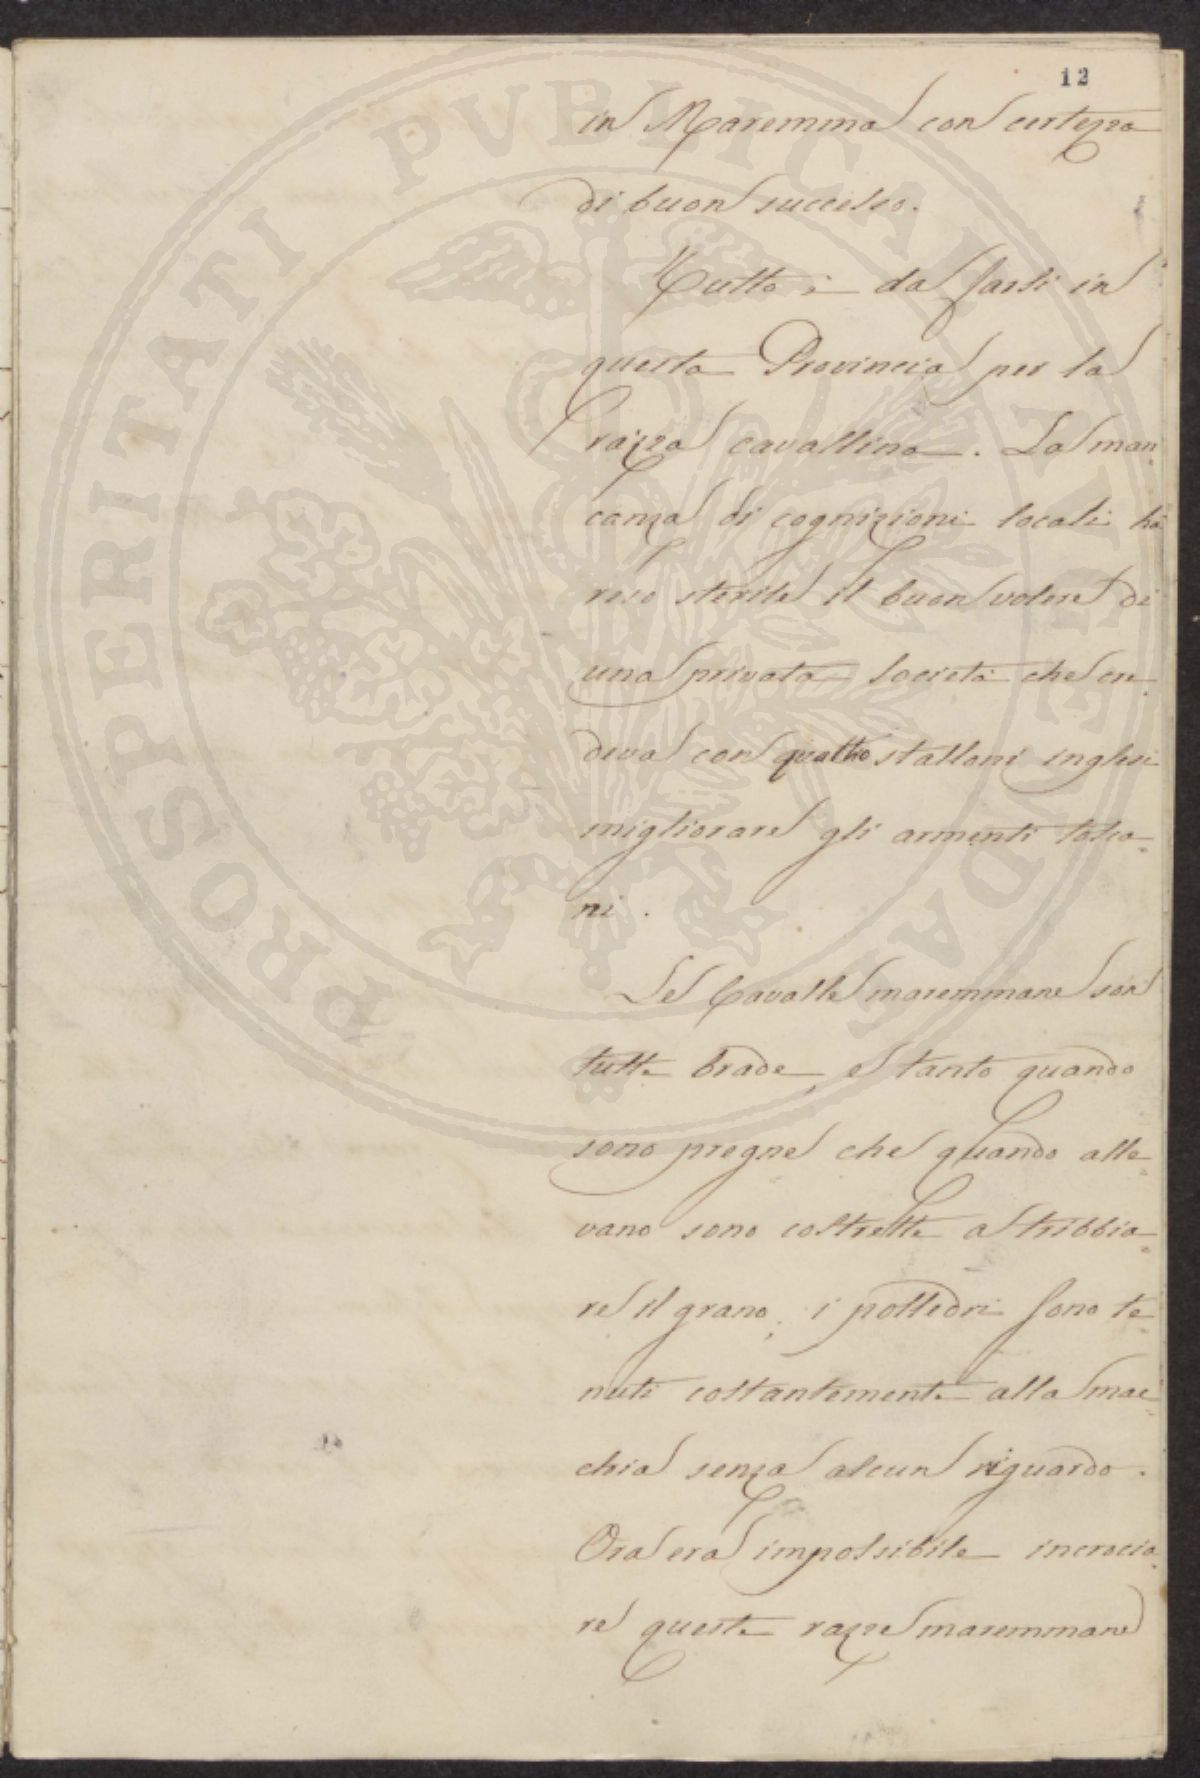 12
in Maremma con certezza
di buon successo.
Tutto è da farsi in
questa Provincia per la
razza cavallina. La man=
canza di cognizioni locali ha
reso sterile il buon volere di
una privata società che cre=
deva con quattro stalloni inglesi
migliorare gli armenti tosca=
ni.
Le Cavalle maremmane son
tutte brade, e tanto quando
sono pregne che quando alle=
vano sono costrette a tribbia=
re il grano; i polledri sono te=
nuti costantemente alla mac=
chia senza alcun riguardo.
Ora era impossibile incrocia=
re queste razze maremmane
PROSPERITATI PUBLICAE AUGENDAE